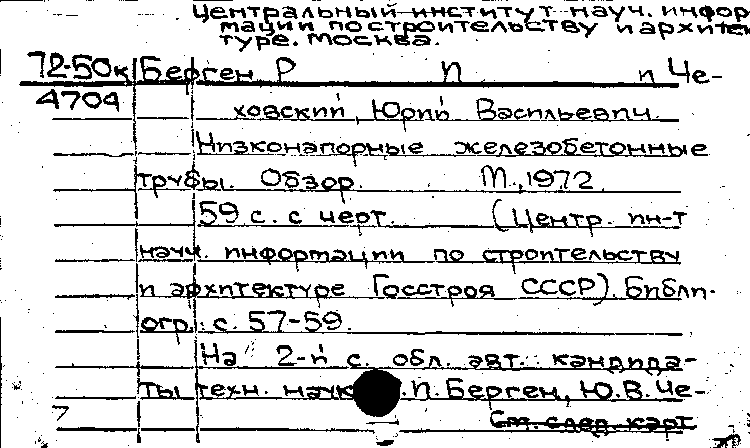 Центральный институт науч. инфор
мации по строительству и архитек
туре. Москва.
72-50к Берген, Р П и Че-
4704
ховский, Юрий Васильевич.
Низконапорные железобетонные
трубы. Обзор. М., 1972.
59 с. с черт. (Центр. ин-т
науч. информации по строительству
и архитектуре Госстроя СССР). Библи-
огр.: с. 57-59.
На 2-й с. обл. авт.: кандида-
ты техн. наук .И. Берген, Ю.В. Че-
7
См. след. карт